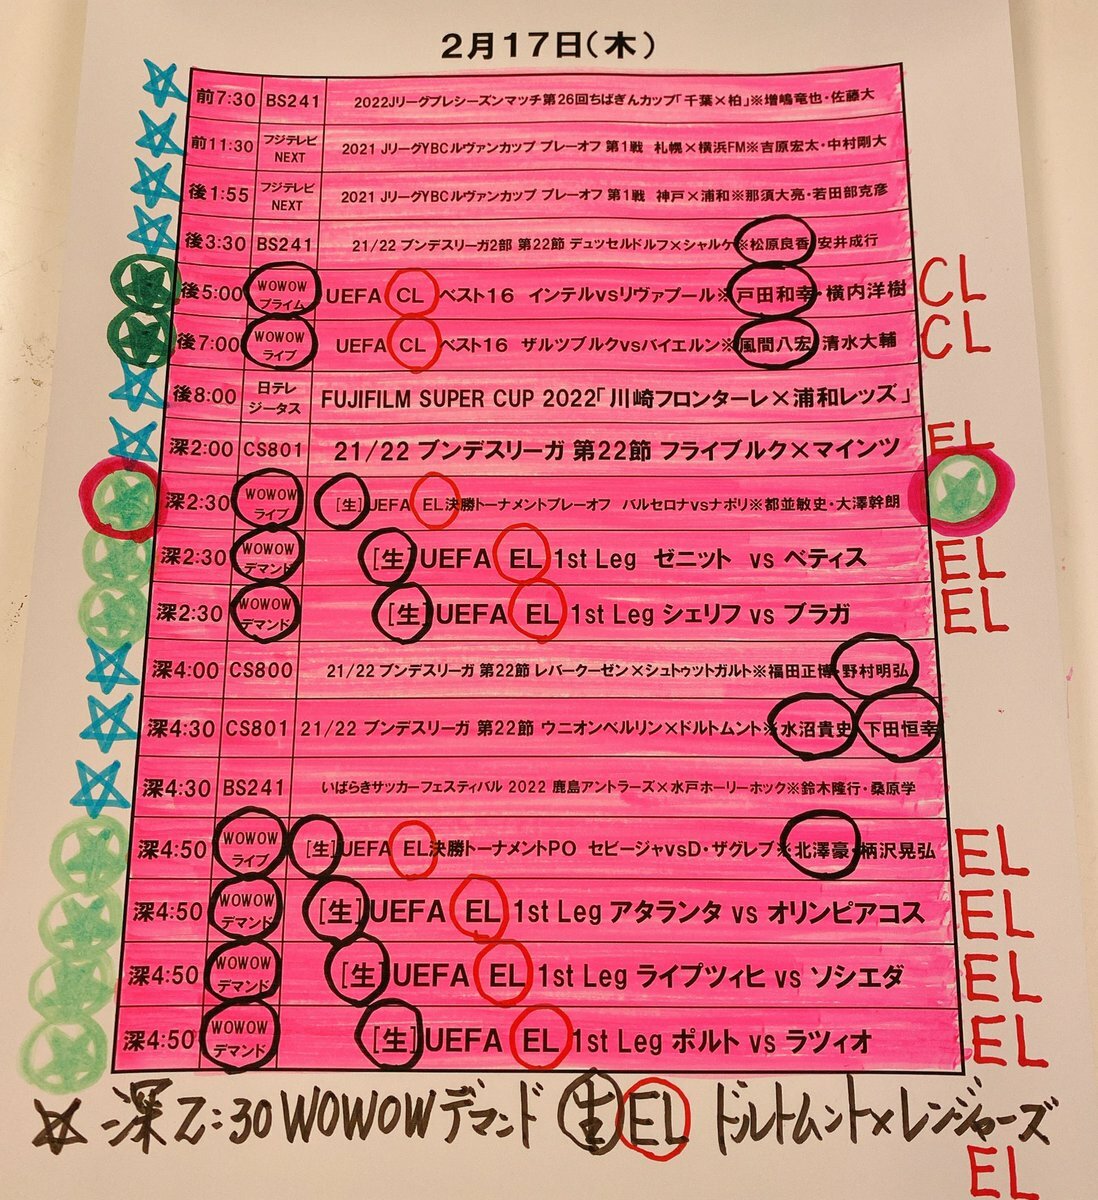 2月17日(木)
前7:30 BS241 2022Jリーグプレシーズンマッチ第26回ちばぎんカップ「千葉×柏」※増嶋竜也・佐藤大
前11:30 フジテレビNEXT 2021 JリーグYBCルヴァンカップ プレーオフ 第1戦 札幌×横浜FM※吉原宏太・中村剛大
後1:55 フジテレビNEXT 2021 JリーグYBCルヴァンカップ プレーオフ 第1戦 神戸×浦和※那須大亮・若田部克彦
後3:30 BS241 21/22 ブンデスリーガ2部 第22節 デュッセルドルフ×シャルケ※松原良香・安井成行
後5:00 WOWOWプライム UEFA CL ベスト16 インテルvsリヴァプール※戸田和幸・横内洋樹 CL
後7:00 WOWOWライブ UEFA CL ベスト16 ザルツブルクvsバイエルン※風間八宏・清水大輔 CL
後8:00 日テレジータス FUJIFILM SUPER CUP 2022「川崎フロンターレ×浦和レッズ」
深2:00 CS801 21/22 ブンデスリーガ 第22節 フライブルク×マインツ
EL
深2:30 WOWOWライブ [生]UEFA EL決勝トーナメントプレーオフ バルセロナvsナポリ※都並敏史・大澤幹朗
深2:30 WOWOWデマンド [生]UEFA EL 1st Leg ゼニット vs ベティス EL
深2:30 WOWOWデマンド [生]UEFA EL 1st Leg シェリフ vs ブラガ EL
深4:00 CS800 21/22 ブンデスリーガ 第22節 レバークーゼン×シュトゥットガルト※福田正博・野村明弘
深4:30 CS801 21/22 ブンデスリーガ 第22節 ウニオンベルリン×ドルトムント※水沼貴史・下田恒幸
深4:30 BS241 いばらきサッカーフェスティバル 2022 鹿島アントラーズ×水戸ホーリーホック※鈴木隆行・桑原学
深4:50 WOWOWライブ [生]UEFA EL決勝トーナメントPO セビージャvsD・ザグレブ※北澤豪・柄沢晃弘 EL
深4:50 WOWOWデマンド [生]UEFA EL 1st Leg アタランタ vs オリンピアコス EL
深4:50 WOWOWデマンド [生]UEFA EL 1st Leg ライプツィヒ vs ソシエダ EL
深4:50 WOWOWデマンド [生]UEFA EL 1st Leg ポルト vs ラツィオ EL
深2:30 WOWOWデマンド 生 EL ドルトムント×レンジャーズ
EL